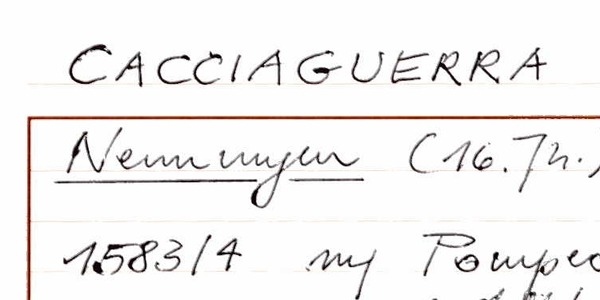 CACCIAGUERRA
Nennungen (16. Jh.)
1583/4 Pompeo